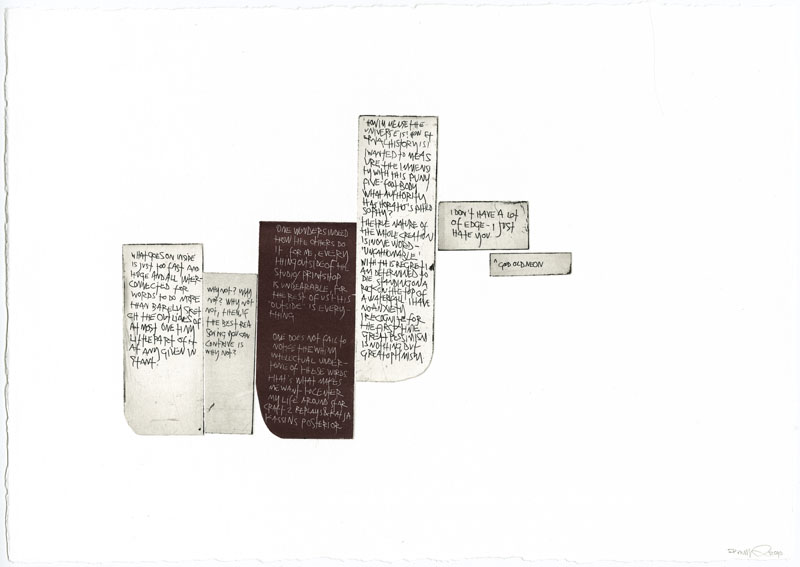 WHAT GOES ON INSIDE
IS JUST TOO FAST AND
HUGE AND ALL INTER-
CONNECTED FOR
WORDS TO DO MORE
THAN BARELY SKET
CH THE OUTLINES OF
AT MOST ONE TINY
LITTLE PART OF IT
AT ANY GIVEN IN
STANT.
WHY NOT? WHY
NOT? WHY NOT
NOT, THEN, IF
THE BEST REA
SONING YOU CAN
CONTRIVE IS
WHY NOT?
ONE WONDERS INDEED
HOW THE OTHERS DO
IT FOR ME, EVERY
THING OUTSIDE OF THE
STUDIO/PRINTSHOP
IS UNBEARABLE, FOR
THE REST OF US THIS
'OUTSIDE' IS EVERY-
THING
ONE DOES NOT FAIL TO
NOTICE THE WHINY
INTELLECTUAL UNDER-
TONES OF THESE WORDS
THAT'S WHAT MAKES
ME WANT TO CENTER
MY LIFE AROUND STAR
CRAFT 2 REPLAYS &
POSTERIOR
HOW IMMENSE THE
UNIVERSE IS! HOW ET
ERNAL HISTORY IS!
I WANTED TO MEAS
URE THE IMMENSI
TY WITH THIS PUNY
FIVE-FOOT BODY
WHAT AUTHORITY
HAS HORATIO'S PHILO
SOPHY?
THE TRUE NATURE OF
THE WHOLE CREATION
IS IN ONE WORD-
'UNFATHOMABLE.'
WITH THIS REGRET I
AM DETERMINED TO
DIE STANDING ON A
ROCK ON THE TOP OF
A WATERFALL I HAVE
NO ANXIETY
I RECOGNIZE FOR
THE FIRST TIME
GREAT PESSIMISM
IS NOTHING BUT
GREAT OPTIMISM
I DON'T HAVE A LOT
OF EDGE - I JUST
HATE YOU.
^ GOD OLD MOON